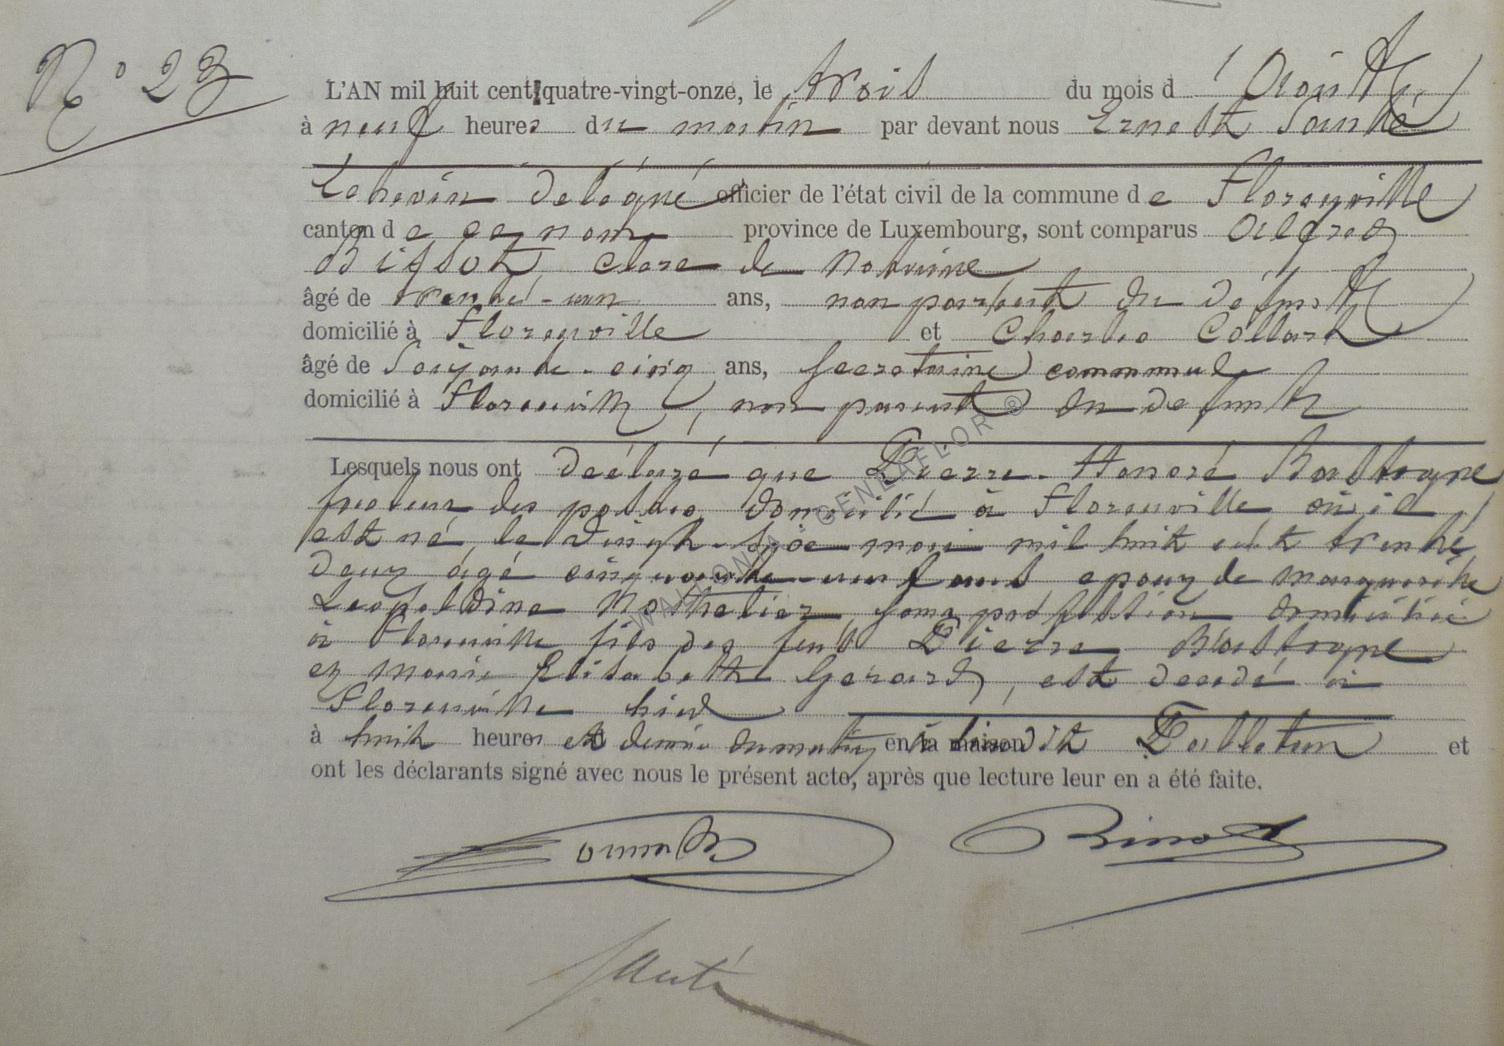 N° 23
L'AN mil huit cent quatre-vingt-onze, le trois du mois d'Août
à neuf heures du matin par devant nous Ernest Sainté
Echevin délégué officier de l'état civil de la commune de Florenville
canton de province de Luxembourg, sont comparus Alfred
clerc de Notaire
âgé de trente-un ans, non parent du défunt
domicilié à Florenville et Charles Collard
âgé de Soixante-cinq ans, Secrétaire communale
domicilié à Florenville, non parent du défunt
Lesquels nous ont déclaré que Pierre-Honoré Bastogne
facteur des postes domicilié à Florenville où il
est né le Vingt-six mai mil huit cent trente
deux, âgé cinquante-neuf ans epoux de Marguerite
Léopoldine Mothelier, sans profession domiciliée
à Florenville fils des feus Pierre Bastogne
et Marie Elisabeth Gerard, est décédé à
Florenville hier
à huit heures et demie du matin en la maison et
ont les déclarants signé avec nous le présent acte, après que lecture leur en a été faite.
WALLONIA GENEAFLOR ©